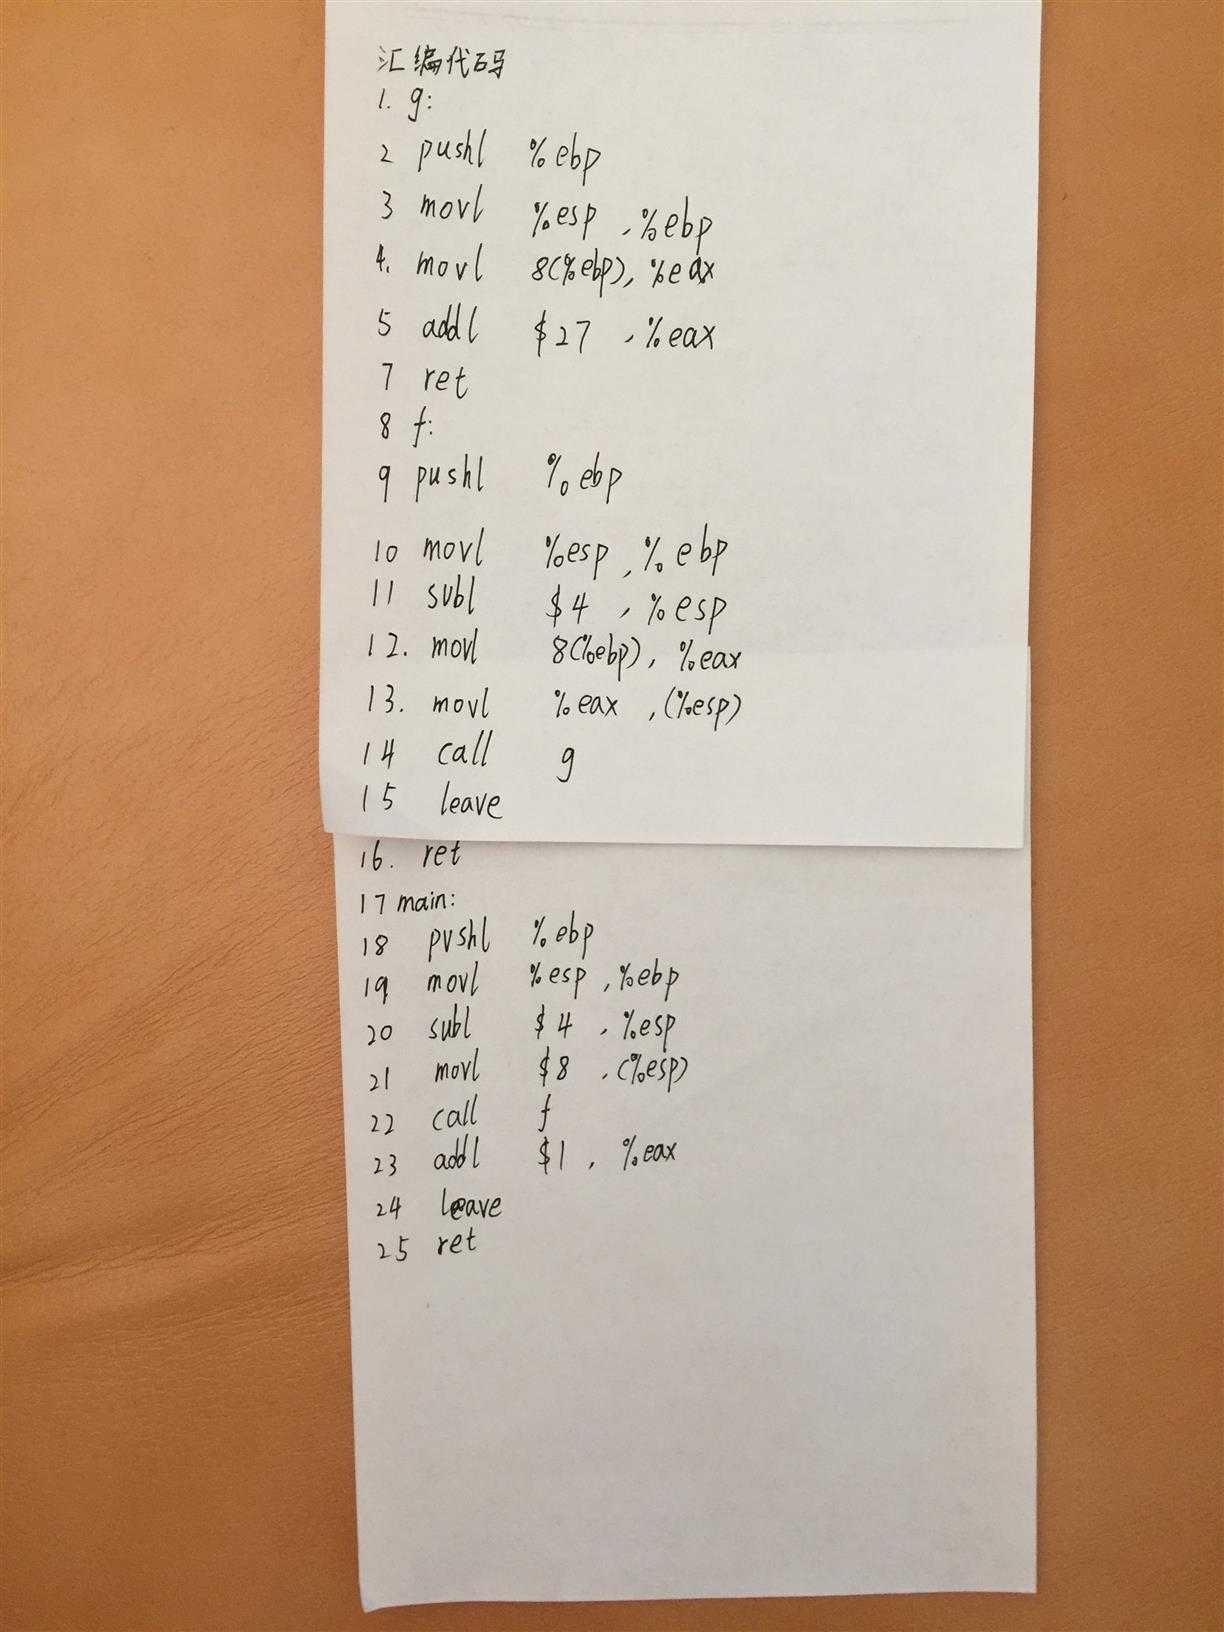 汇编代码
1. g:
2 pushl %ebp
3 movl %esp, %ebp
4. movl 8(%ebp), %eax
5 addl $27, %eax
7 ret
8 f:
9 pushl %ebp
10 movl %esp, %ebp
11 subl $4, %esp
12. movl 8(%ebp), %eax
13. movl %eax, (%esp)
14 call g
15 leave
16. ret
17 main:
18 pushl %ebp
19 movl %esp, %ebp
20 subl $4, %esp
21 movl $8, (%esp)
22 call f
23 addl $1, %eax
24 leave
25 ret